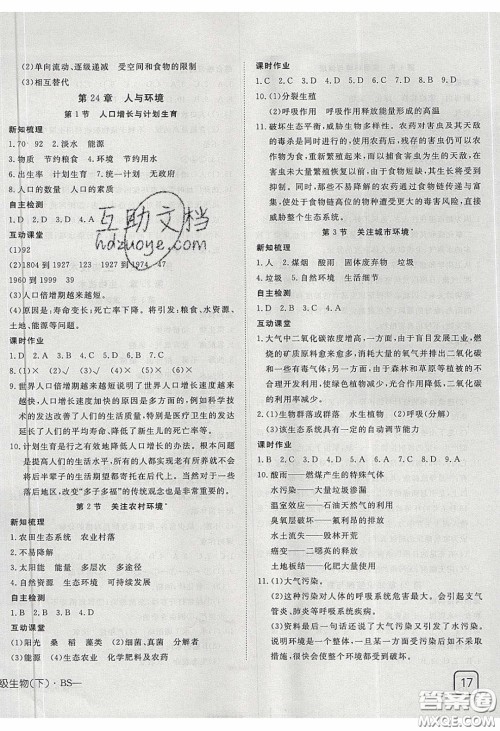 (2)单向流动、逐级递减　受空间和食物的限制
(3)相互替代
第24章　人与环境
第1节　人口增长与计划生育
新知梳理
1.70　92　2.淡水　能源
3.物质　节约粮食　4.人口　环境
5.出生率　计划生育　6.统一计划　无政府
8.人口的数量　人口的素质
自主检测
1.D　2.D　3.A　4.D　5.D
互动课堂
(1)92
(2)1804　到　1927　123　1927　到　1974　47
1960　到　1999　39
(3)人口倍增期越来越短。
(4)原因是:寿命变长;死亡率下降。将引发:粮食、水资源、
土地、能源等问题。
课时作业
1.D　2.A　3.B　4.D　5.D　6.B　7.B
8.(1)×　(2)√　(3)√　(4)×　(5)×
9.世界人口倍增期越来越短说明世界人口增长速度越来
越快。人口增长加快的原因是多方面的,例如,科学技术
的发达改善了人们的生活质量,特别是医疗卫生的发达
延长了人的寿命,降低了新生儿的死亡率等。
10.计划生育是行之有效地降低人口增长的办法。根本问题
是提高人们的生活水平,人们都希望自己和家人过上更
富裕的生活,自然会降低人口的增长。另一方面,对于一
些落后地区,改变“多子多福”的传统观念也是极其重
要的。
第2节　关注农村环境*
新知梳理
1.农田生态系统　农业村落
2.不易降解
3.太阳能　能源　多功能　多层次　多目标
4.自然资源　生态环境　可持续发展
自主检测
1.B　2.D　3.C　4.D　5.A
互动课堂
(1)阳光　桑　稻　藻类　(2)细菌、真菌　分解者
(3)能源　(4)生态农业　化学肥料及农药
级生物(下)·BS—
课时作业
1.C　2.C　3.D　4.D　5.C　6.D　7.D　8.B　9.D
10.(1)分裂生殖
(2)呼吸作用　呼吸作用释放能量形成的高温
11.破坏生态平衡,威胁生物多样性。农药对害虫及其天敌
的毒杀是同时进行的,使用农药后,残存的害虫仍可以农
作物为食,重新繁殖而很快增长,而以害虫为食的天敌,
在害虫未大量繁殖恢复以前,由于食物短缺,其生长受到
抑制。另外,一些不易降解的农药通过食物链传递与富
集,对处于食物链高位的生物产生更大的毒害风险,直接
威胁整个生态系统。
第3节　关注城市环境*
新知梳理
1.人　2.煤烟　酸雨　固体废弃物　垃圾
4.垃圾　5.自然环境　生活细节
自主检测
1.D　2.B　3.A　4.C　5.D
互动课堂
1.大气中二氧化碳浓度增高,一方面是由于工业的开展,燃
烧的矿质原料愈来愈多,消耗大量的氧气并排出二氧化
碳和其他有毒气体;另一方面,由于森林和草原等植被的
不合理开发利用,面积减少,二氧化碳利用量减少,从而
使温室效应增强。
2.(1)生物群落或群落　水生植物　(2)呼吸(分解)
(3)该生态系统具有一定的自动调节能力
课时作业
1.B　2.B　3.D　4.B　5.C　6.D　7.D　8.C　9.A
10.酸雨——燃煤产生的特殊气体
水污染——大量垃圾渗漏
温室效应——石油天然气的利用
臭氧层破坏——氟利昂的利用
水土流失——毁林开荒
癌变——二噁英的释放
土地板结——化肥大量使用
11.(1)大气污染。
(2)这种污染对人体的呼吸系统危害最大,会引发支气
管炎、肺炎等呼吸系统疾病。
(3)资料最后一句话还说明了大气污染加重了水污染,
说明环境是一个有机的整体,一方面的污染治理不好还
会引发其他方面的污染。
17
互助文档
hdzuoye.com
答案圈
MXQE.COM